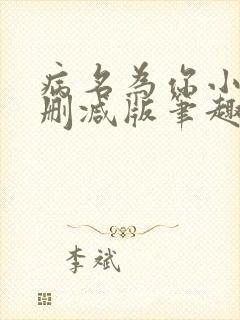 病名为你小
删减版笔趣
李斌